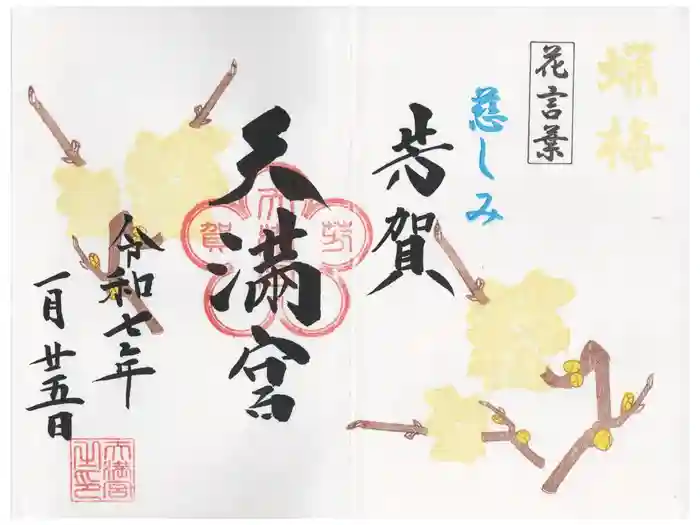 蝋梅
花言葉
慈しみ
芳賀
天満宮
令和七年
一月廿五日
芳賀
天満宮
之印